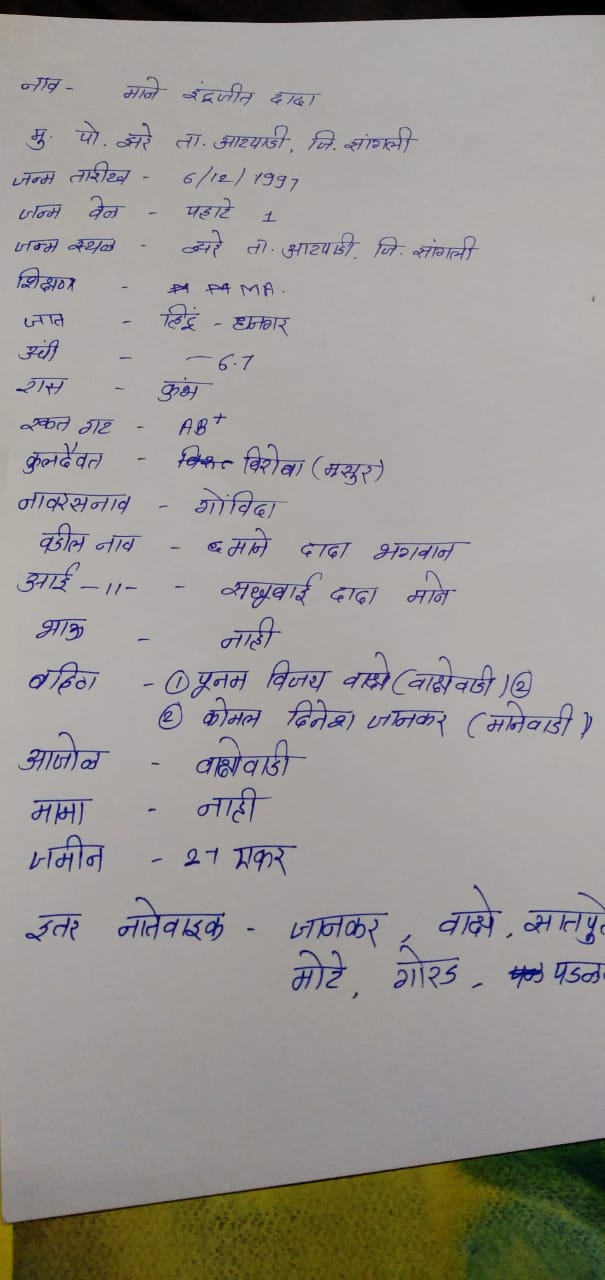 नाव - माने इंद्रजीत दादा
मु. पो. झरे ता. आटपाडी, जि. सांगली
जन्म तारीख - 6/12/1997
जन्म वेळ - पहाटे 1
जन्म स्थळ - झरे ता. आटपाडी, जि. सांगली
शिक्षण - MA.
जात - हिंदू - धनगर
उंची - 6.7
रास - कुंभ
रक्त गट - AB+
कुलदैवत - बिरोबा (मसुर)
नावरसनाव - गोविंदा
वडील नाव - माने दादा भगवान
आई -11- - दादा माने
भाऊ - नाही
बहिण - ① पूनम विजय वाक्षे (वाक्षेवाडी) ②
② कोमल दिनेश जानकर (मानेवाडी)
आजोळ - वाक्षेवाडी
मामा - नाही
जमीन - 27 एकर
इतर नातेवाइक - जानकर, वाक्षे,
मोटे, गोरड,